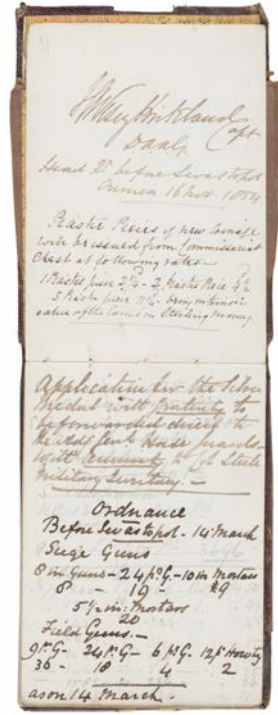 J. W. Vesey Kirkland
Capt
D.A.A.G.
Head Qrs before Sevastopol
Crimea 16 Nov. 1854
Piastre Pieces of new Coinage
will be issued from Commissariat
Chest at following rates
1 Piastre piece 2¼d - 2 Piastre Piece 4½
5 Piastre piece 11¼ - being intrinsic
value of the Coins in Sterling money
Application for the Silver
Medal with gratuity to
be forwarded direct to
the Adjt Genl Horse Guards
with annuity to Col Steele
Military Secretary. -
Ordnance
Before Sevastopol - 14 March
Siege Guns
8 in Guns - 24 pr G. - 10 in Mortars
8 - 19 - 29
5½ in: Mortars
20
Field Guns. -
9 pr G- 24 pr G- 6 pr G. 12 pr Howtz
36 - 18 4 2
as on 14 March.